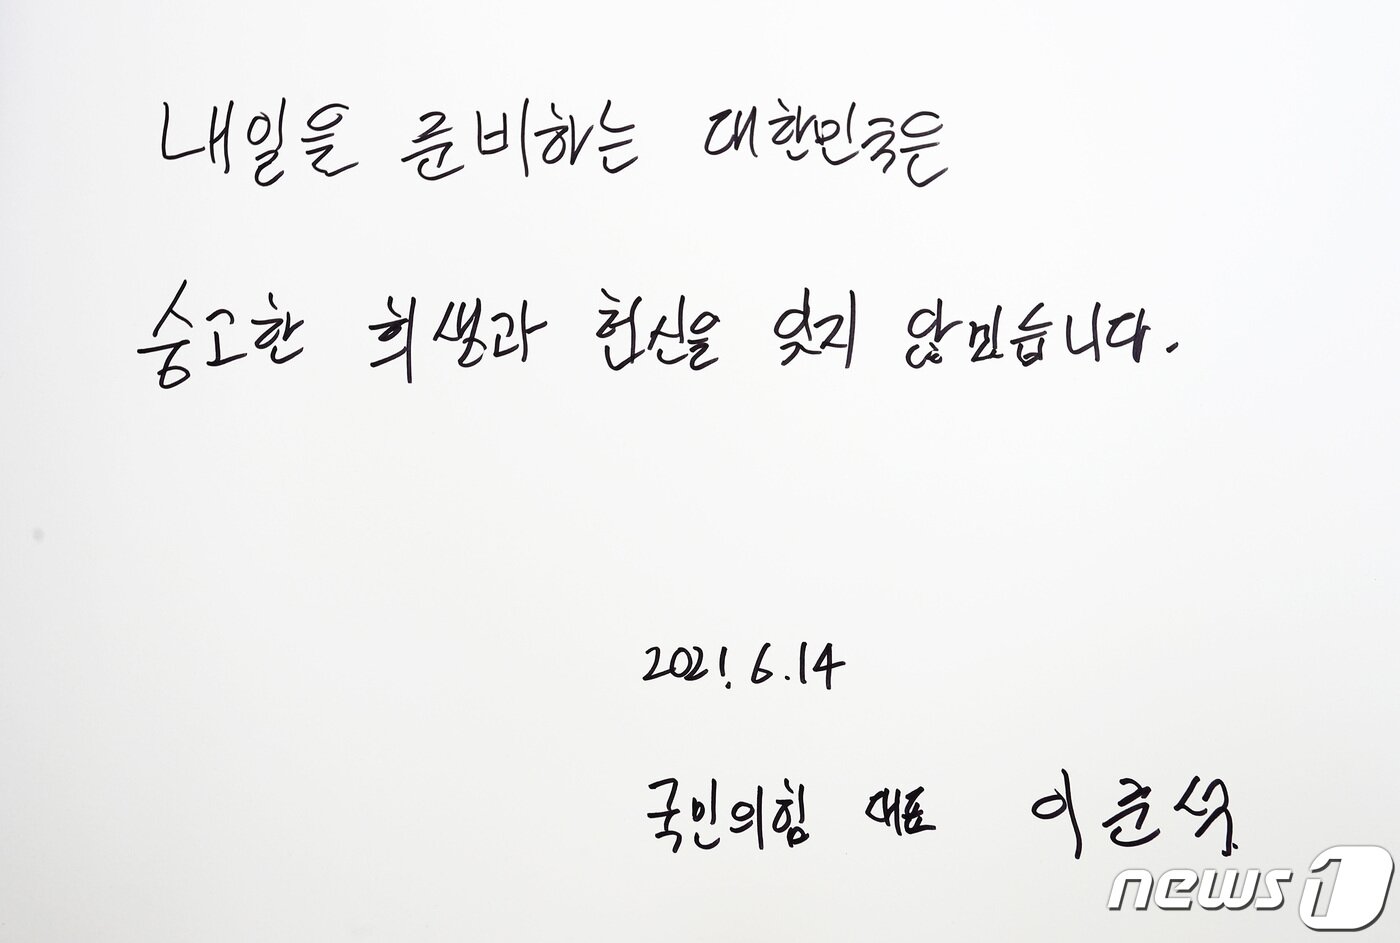 내일을 준비하는 대한민국은
숭고한 희생과 헌신을 잊지 않민습니다.
2021. 6.14
국민의힘 대표 이준석
news1